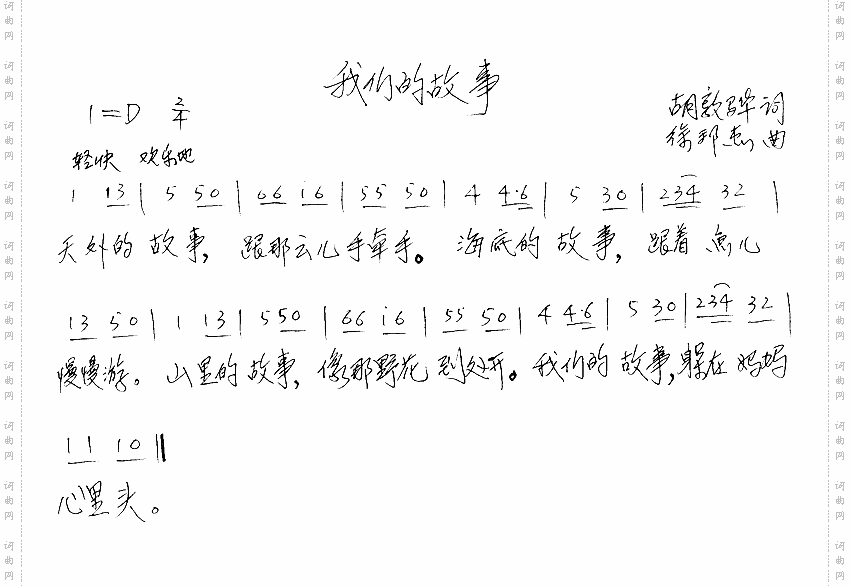 我们的故事
1=D 2/4
胡敦骅 词
徐邦杰 曲
轻快 欢乐地
1 13 | 5 50 | 66 i6 | 55 50 | 4 4·6 | 5 30 | 234 32 |
天外的故事，跟那云儿手牵手。海底的故事，跟着鱼儿
13 50 | 1 13 | 5 50 | 66 i6 | 55 50 | 4 4·6 | 5 30 | 234 32 |
慢慢游。山里的故事，像那野花到处开。我们的故事，躲在妈妈
11 10 ‖
心里头。
词曲网